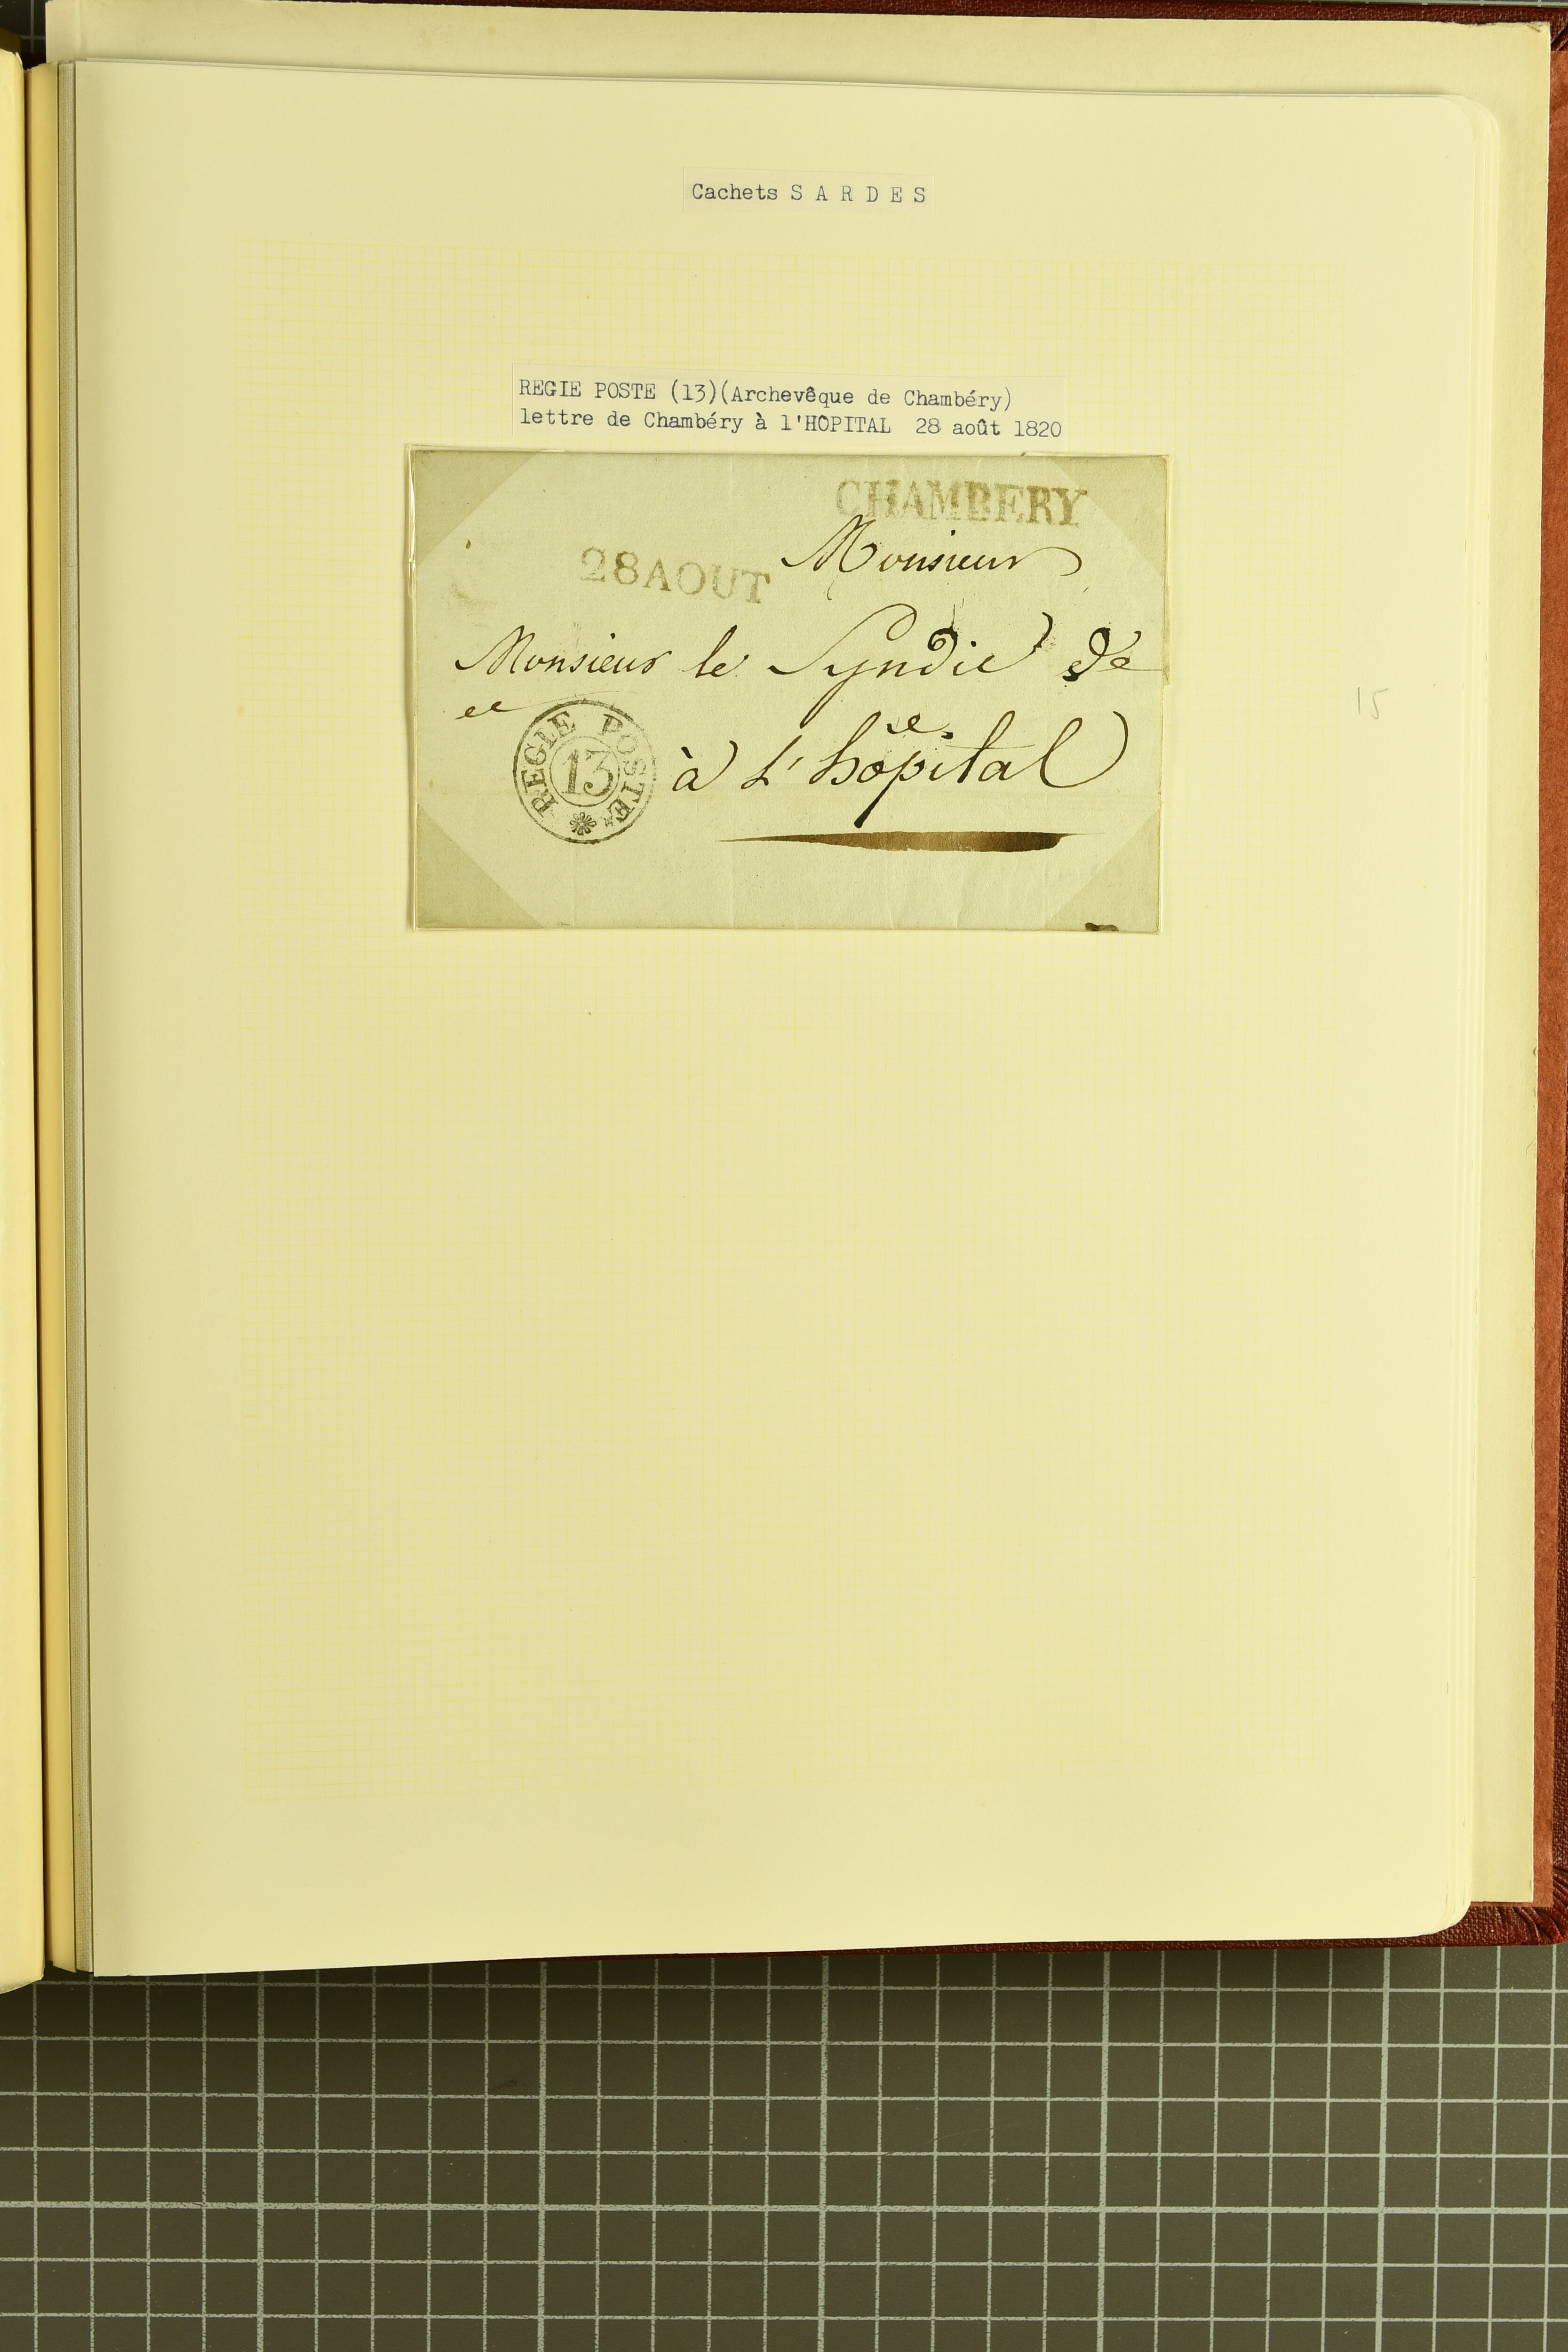 Cachets S A R D E S
REGIE POSTE (13)(Archevêque de Chambéry)
lettre de Chambéry à l'HÔPITAL 28 août 1820
CHAMBERY
28 AOUT
Monsieur
Monsieur le Syndic de
à L'hôpital
REGIE POSTE
13
15